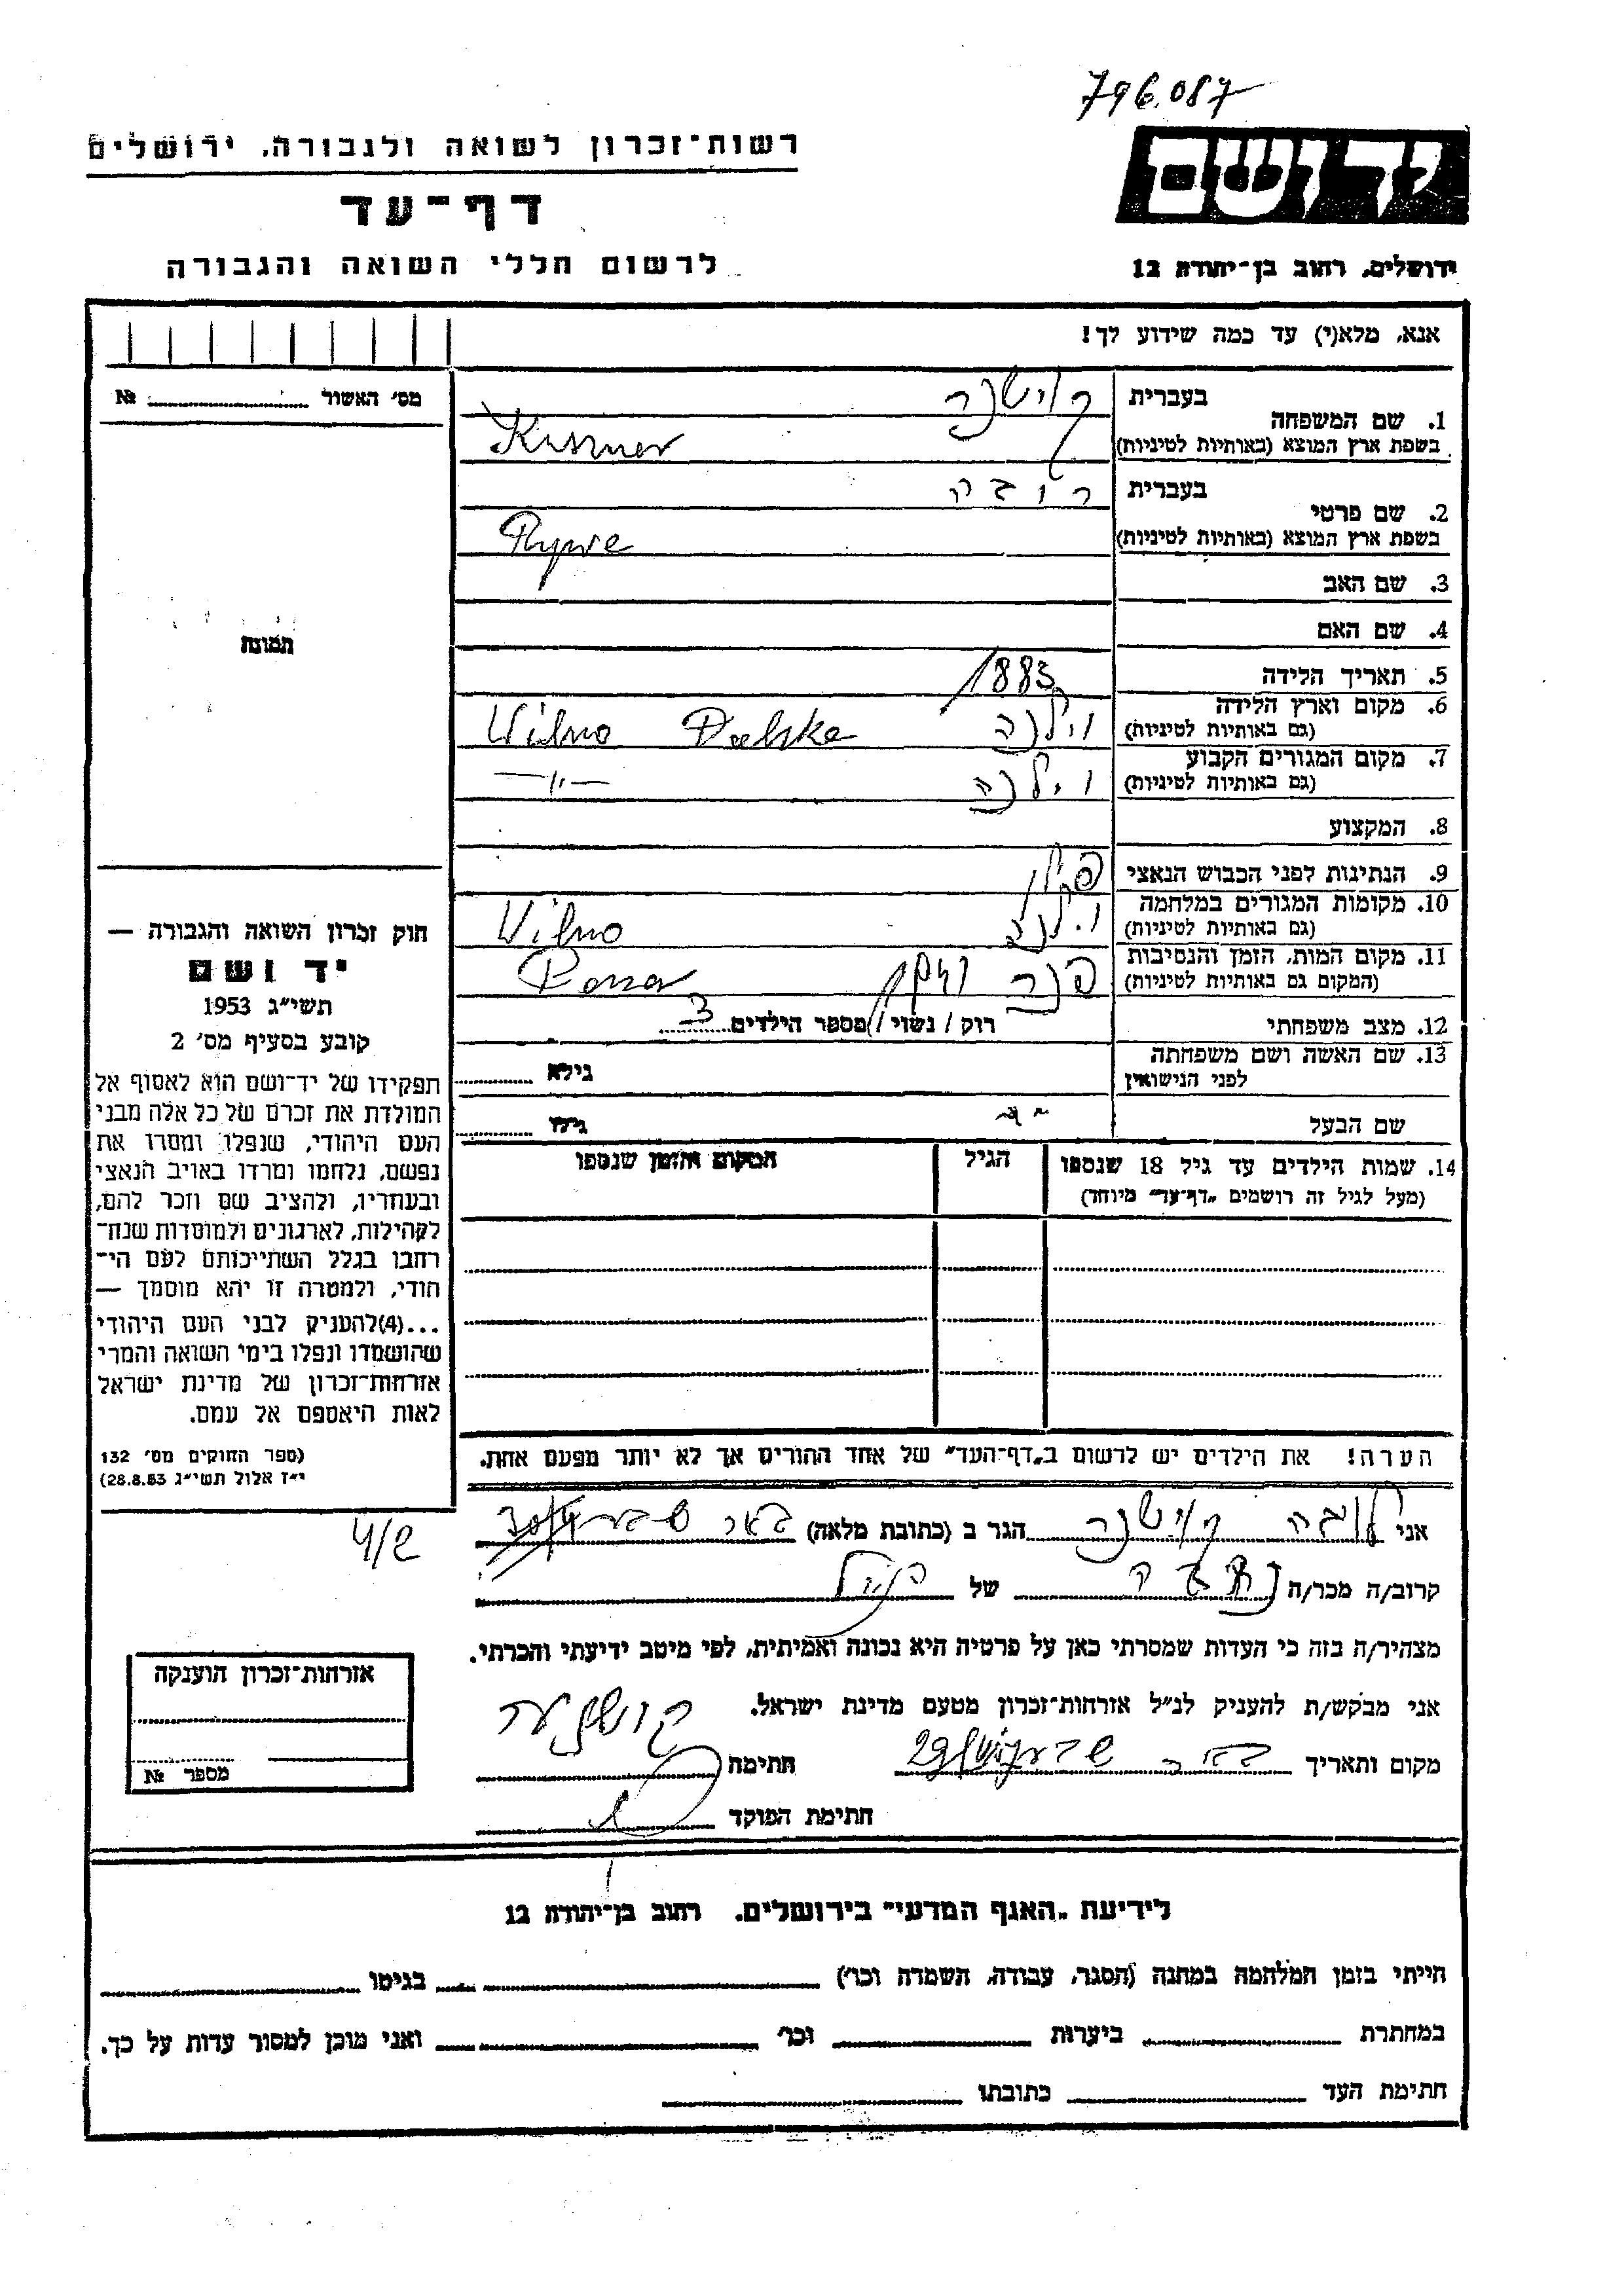 796.087
רשות־זכרון לשואה ולגבורה, ירושלים
יד ושם
דף־עד
לרשום חללי השואה והגבורה
ירושלים, רחוב בן־יהודה 12
אנא, מלא(י) עד כמה שידוע לך!
מס׳ האשול № 
1. שם המשפחה
בעברית
קושנר
בשפת ארץ המוצא (באותיות לטיניות)
Kuszner
2. שם פרטי
בעברית
ריבה
בשפת ארץ המוצא (באותיות לטיניות)
Rywe
3. שם האב
4. שם האם
תמונה
5. תאריך הלידה 1883
6. מקום וארץ הלידה
(גם באותיות לטיניות)
וילנה Wilno
7. מקום המגורים הקבוע
(גם באותיות לטיניות)
וילנה —〃—
8. המקצוע
9. הנתינות לפני הכבוש הנאצי
פולין
10. מקומות המגורים במלחמה
(גם באותיות לטיניות)
וילנה Wilno
11. מקום המות, הזמן והנסיבות
(המקום גם באותיות לטיניות)
פנר
12. מצב משפחתי
רוק / נשוי / מספר הילדים 3
13. שם האשה ושם משפחתה
לפני הנישואין
גילא
שם הבעל
גילו
14. שמות הילדים עד גיל 18 שנספו
(מעל לגיל זה רושמים „דף־עד״ מיוחד)
הגיל
המקום והזמן שנספו
חוק זכרון השואה והגבורה —
יד ושם
תשי״ג 1953
קובע בסעיף מס׳ 2
תפקידו של יד־ושם הוא לאסוף אל
המולדת את זכרם של כל אלה מבני
העם היהודי, שנפלו ומסרו את
נפשם, נלחמו ומרדו באויב הנאצי
ובעוזריו, ולהציב שם וזכר להם,
לקהילות, לארגונים ולמוסדות שנח־
רחבו בגלל השתייכותם לעם הי־
הודי, ולמטרה זו יהא מוסמך —
...(4)להעניק לבני העם היהודי
שהושמדו ונפלו בימי השואה והמרי
אזרחות־זכרון של מדינת ישראל
לאות היאספם אל עמם.
(ספר החוקים מס׳ 132
י״ז אלול תשי״ג 28.8.53)
הערה! את הילדים יש לרשום ב„דף־העד״ של אחד ההורים אך לא יותר מפעם אחת.
אני לובה קושנר הגר ב (כתובת מלאה) באר שבע
4/2
קרוב/ה מכר/ה של
מצהיר/ה בזה כי העדות שמסרתי כאן על פרטיה היא נכונה ואמיתית, לפי מיטב ידיעתי והכרתי.
אני מבקש/ת להעניק לנ״ל אזרחות־זכרון מטעם מדינת ישראל.
מקום ותאריך באר שבע
חתימה
חתימת הפוקד
אזרחות־זכרון הוענקה
מספר №
לידיעת „האגף המדעי״ בירושלים. רחוב בן־יהודה 12
הייתי בזמן המלחמה במחנה (הסגר, עבודה, השמדה וכו׳) בגיטו
במחתרת ביערות וכו׳ ואני מוכן למסור עדות על כך.
חתימת העד כתובתו